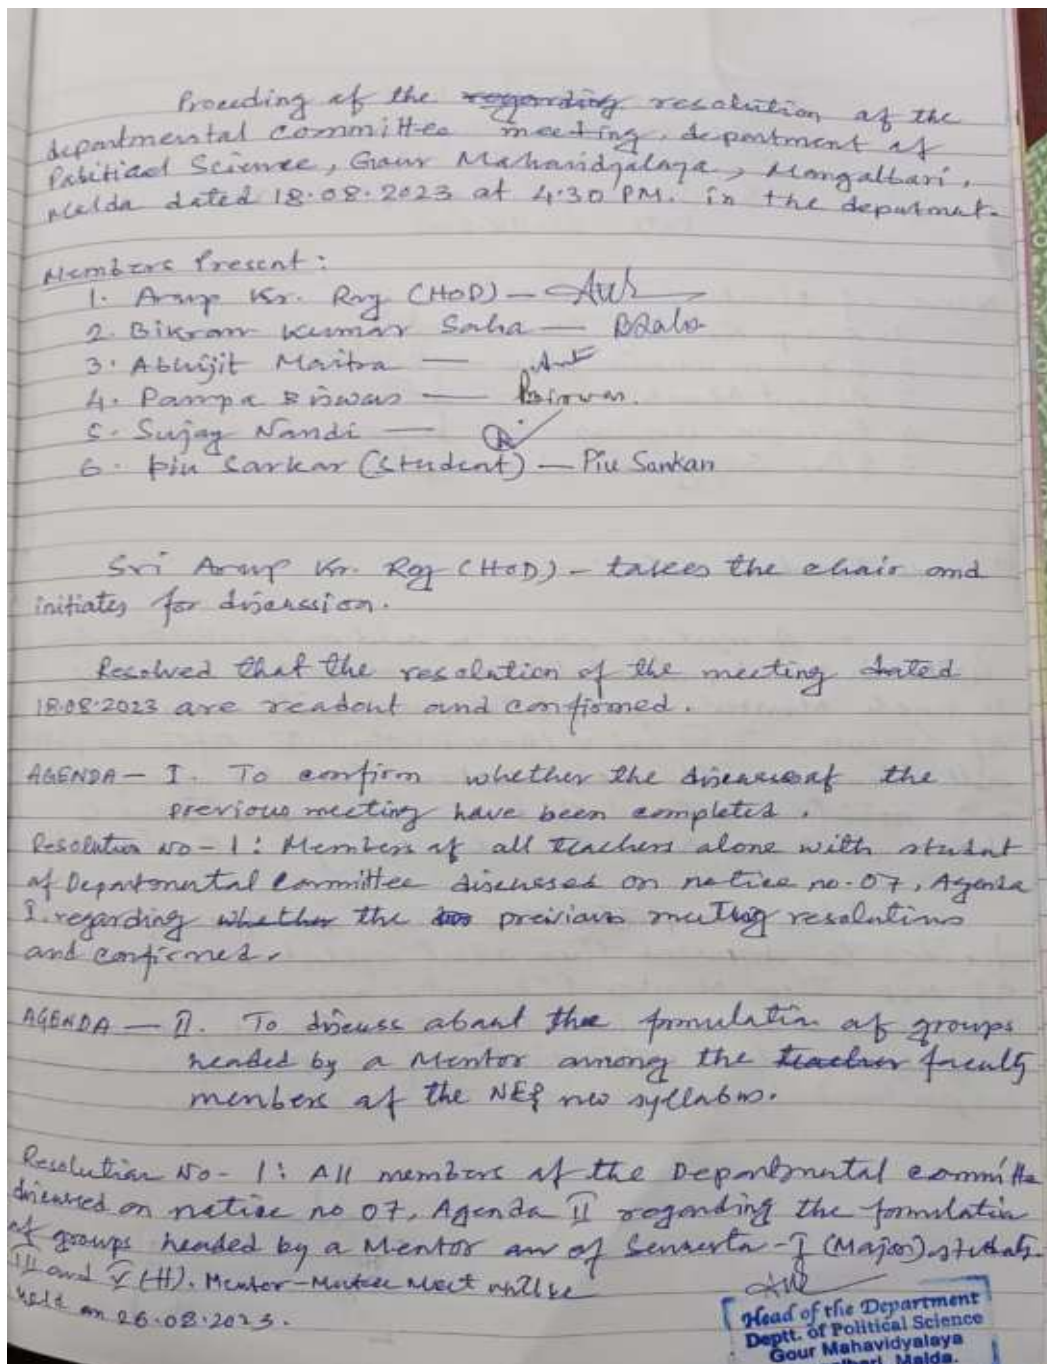 Proceeding of the regarding resolution of the
departmental committee meeting, department of
Political Science, Gour Mahavidyalaya, Mangalbari,
Malda dated 18.08.2023 at 4.30 PM. in the departmet.
Members Present:
1. Arup Kr. Roy (HOD) –
2. Bikram Kumar Saha — BSaha
3. Abhijit Maitra —
4. Pampa Biswas — Biswas.
5. Sujay Nandi —
6. Piu Sarkar (Student) — Piu Sarkar
Sri Arup Kr. Roy (HOD) – takes the chair and
initiates for discussion.
Resolved that the resolution of the meeting dated
18.08.2023 are readout and confirmed.
AGENDA – I. To confirm whether the the
previous meeting have been completed.
Resolution No – 1: Members of all teachers alone with student
of Departmental Committee discussed on notice no. 07, Agenda
I. regarding whether the previous meeting resolutions
and confirmed.
AGENDA — II. To discuss about the formulation of groups
headed by a Mentor among the teacher faculty
members of the NEP new syllabus.
Resolution No – 1: All members of the Departmental committee
discussed on notice no 07, Agenda II regarding the formulation
of groups headed by a Mentor of Semester – I (Major) students.
III and V (H). Mentor-Mentee Meet will be
held on 26.08.2023.
Head of the Department
Deptt. of Political Science
Gour Mahavidyalaya
Malda.